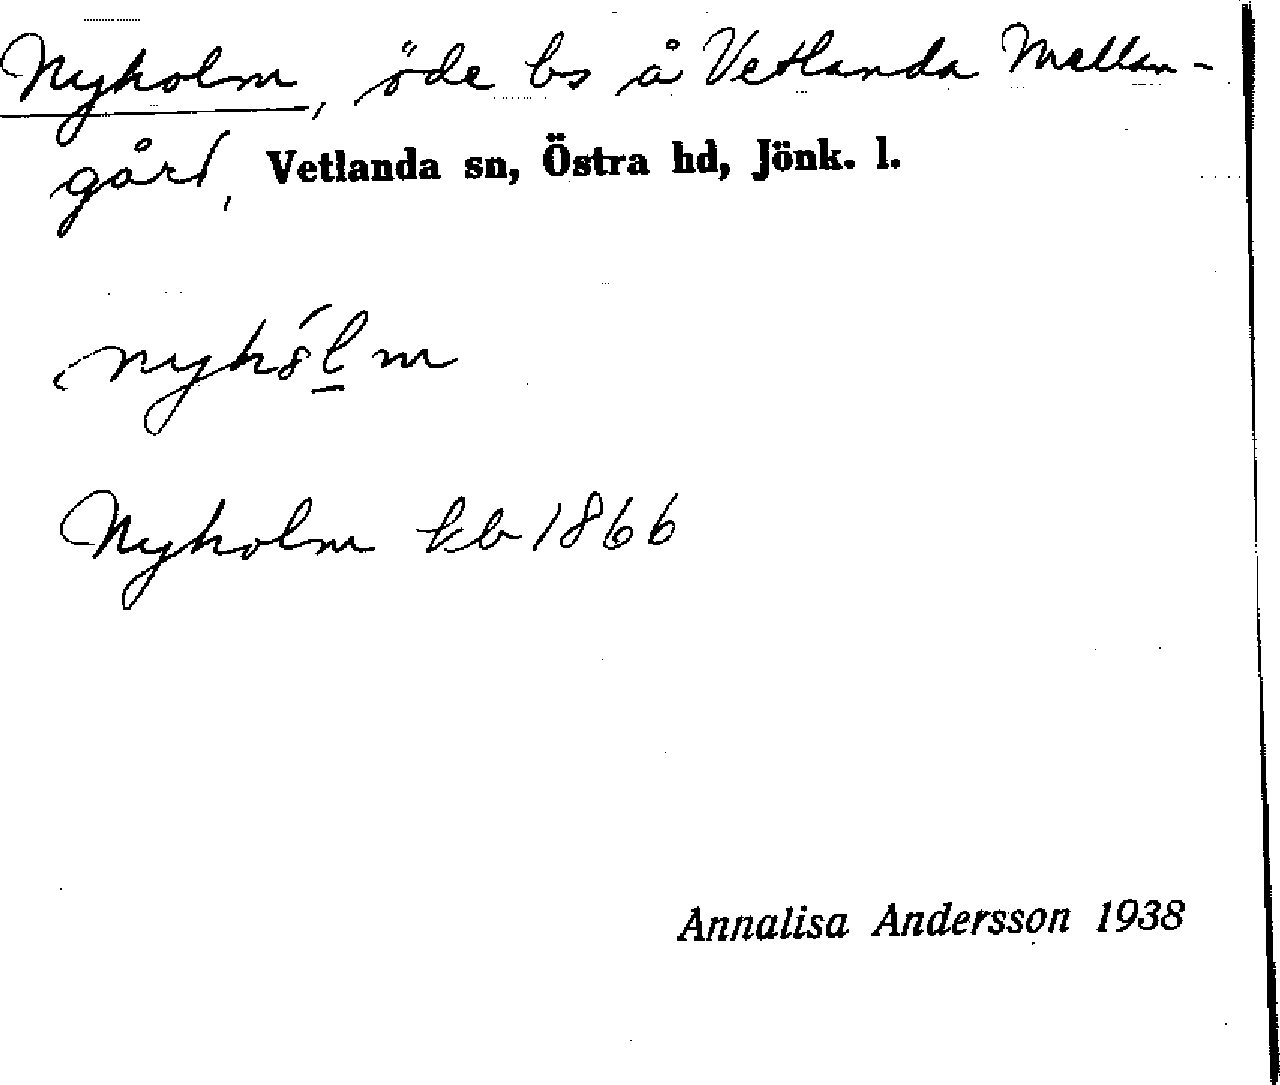 Nyholm, öde bs å Vetlanda Mellan-
gård, Vetlanda sn, Östra hd, Jönk. l.
Nyholm kb 1866
Annalisa Andersson 1938